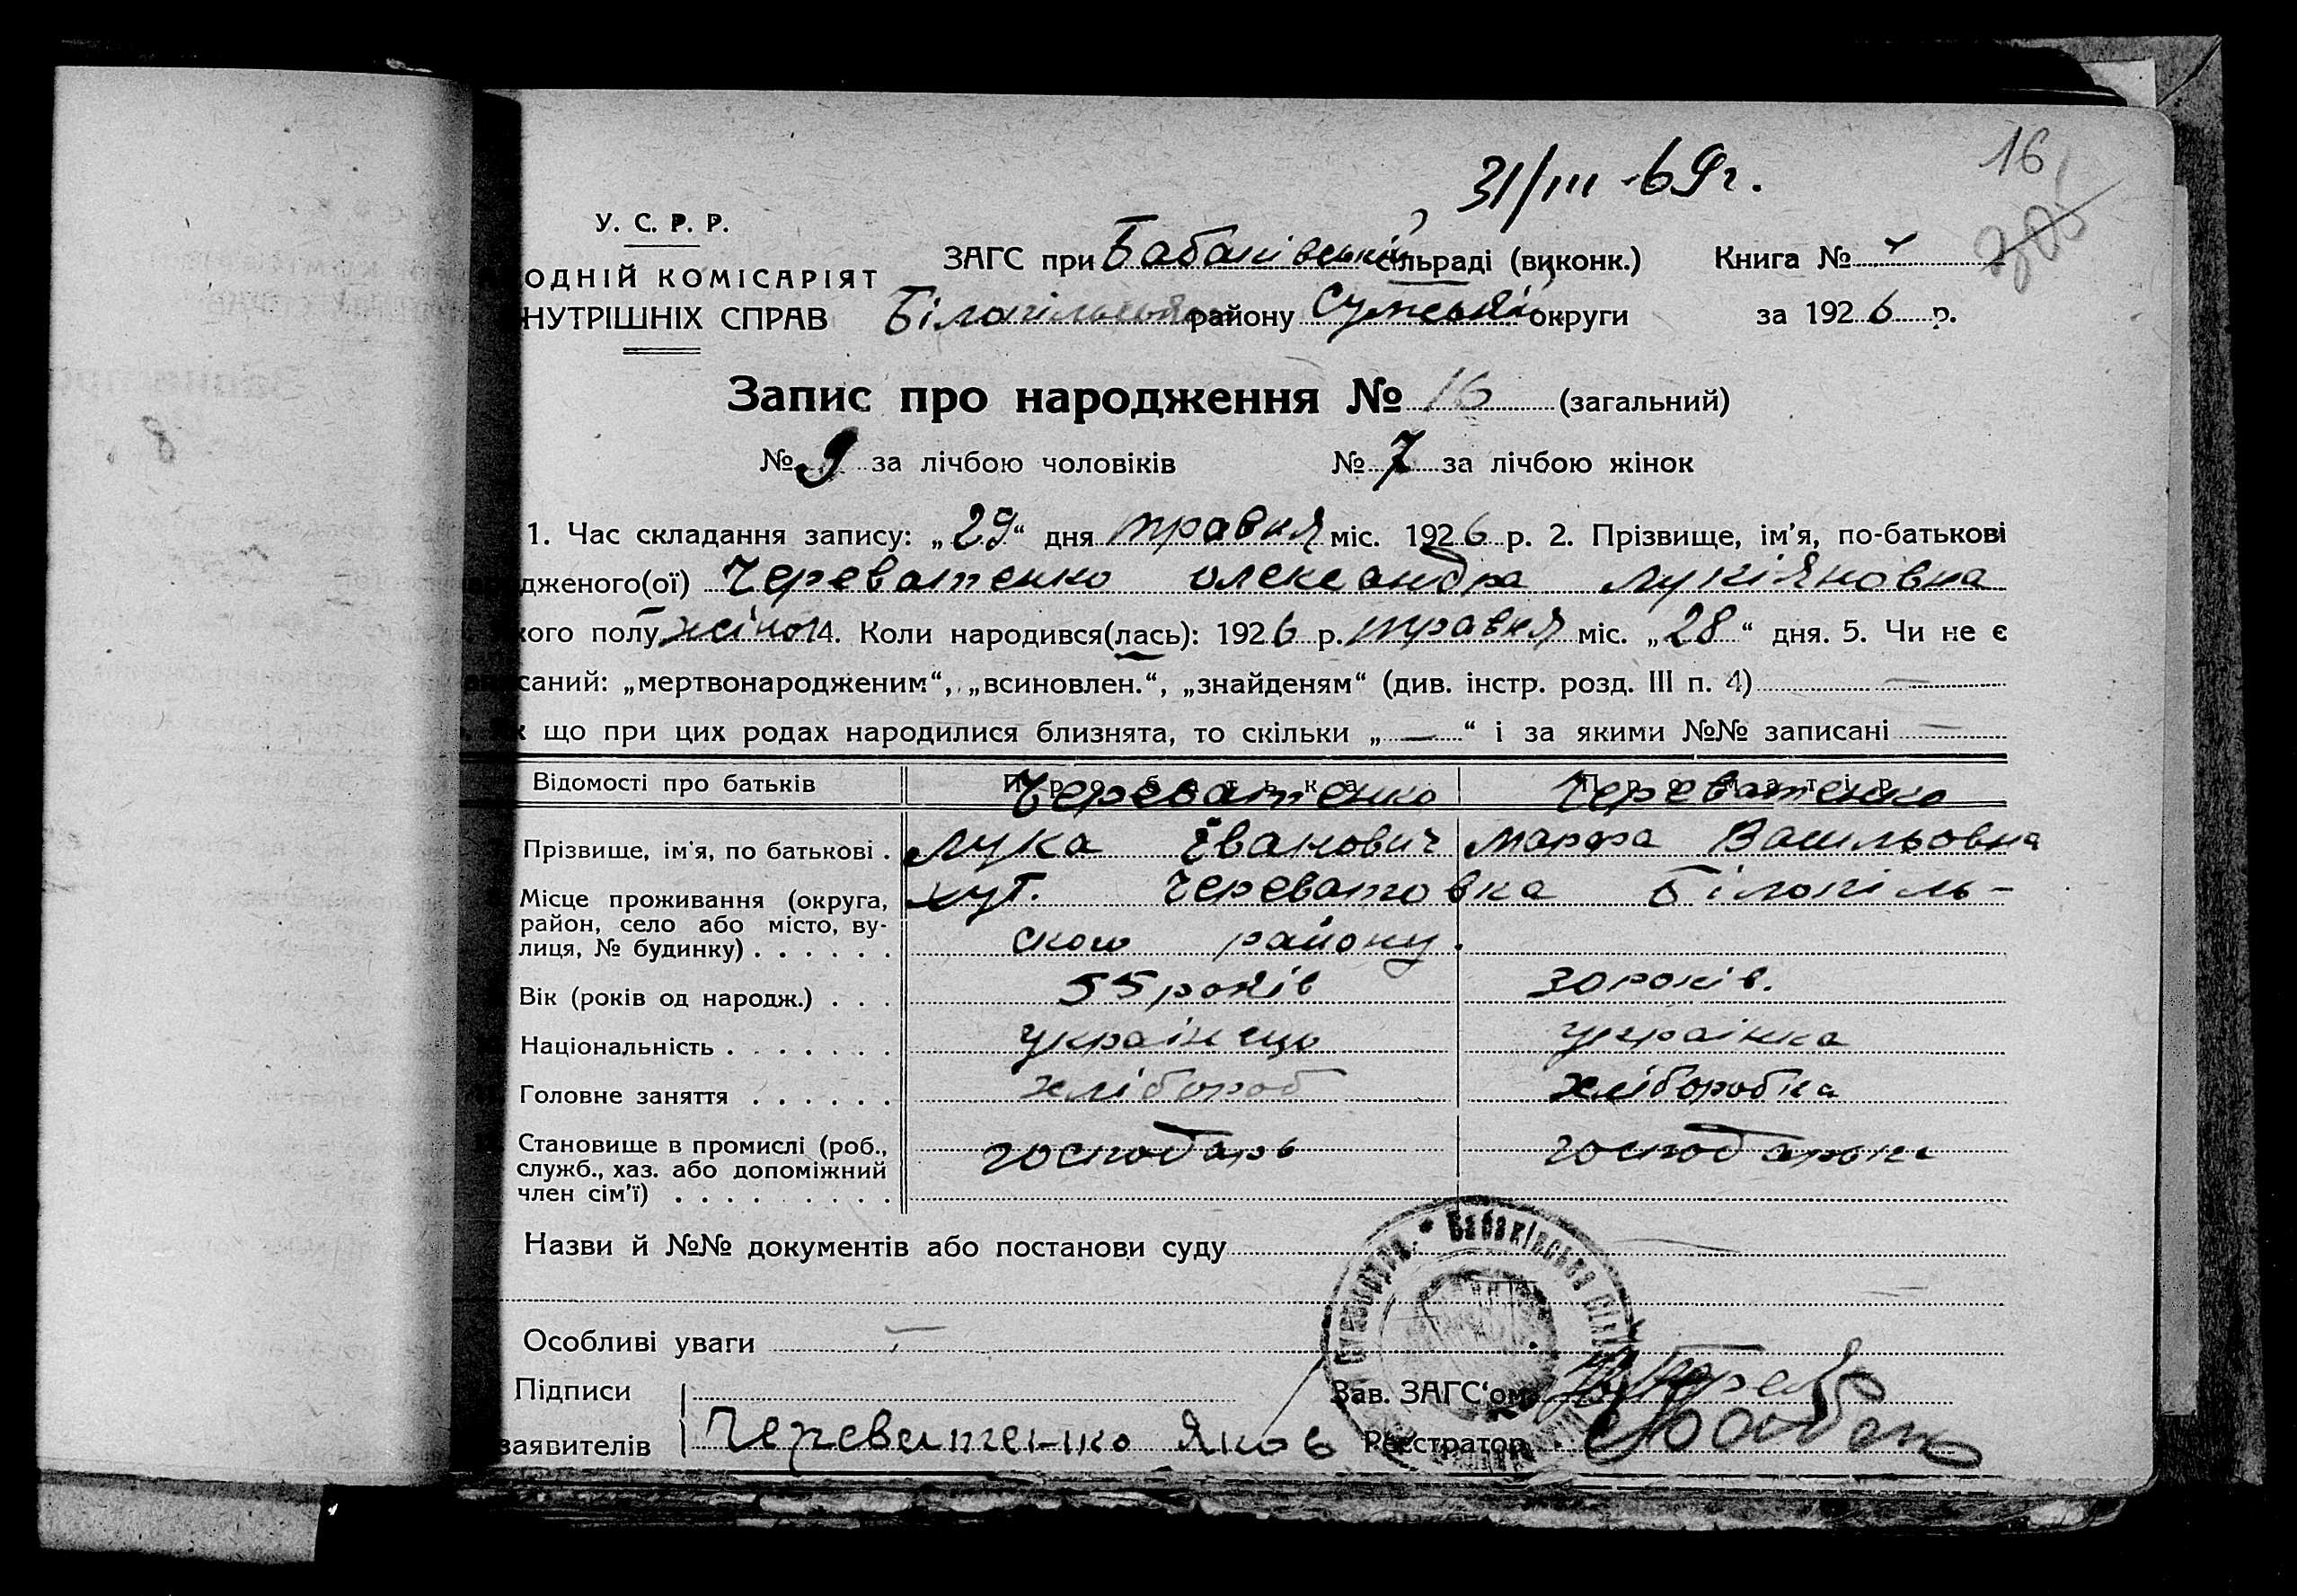 31/III-69г.
16
У. С. Р. Р.
ОДНІЙ КОМІСАРІЯТ
НУТРІШНІХ СПРАВ
ЗАГС при Бабаківській сільраді (виконк.) Книга №
Білопільського району Сумській округи за 1926 р.
Запис про народження № 16 (загальний)
№ 9 за лічбою чоловіків № 7 за лічбою жінок
1. Час складання запису: „29“ дня травня міс. 1926 р. 2. Прізвище, ім'я, по-батькові
дженого(ої) Череватенко Олександра Лукіяновна
кого полу жіноч 4. Коли народився(лась): 1926 р. травня міс. „28“ дня. 5. Чи не є
саний: „мертвонародженим“, „всиновлен.“, „знайденям“ (див. інстр. розд. III п. 4) —
що при цих родах народилися близнята, то скільки „—“ і за якими №№ записані —
Відомості про батьків Про батька Про матір
Череватенко Череватенко
Прізвище, ім'я, по батькові . Лука Іванович Марфа Васильовна
Місце проживання (округа, район, село або місто, вулиця, № будинку) . . . . . . хут. Череватовка Білопіль-
ского району.
Вік (років од народж.) . . . 55 років 30 років.
Національність . . . . . . . українець українка
Головне заняття . . . . . . хлібороб хліборобка
Становище в промислі (роб., господарь господарька
служб., хаз. або допоміжний
член сім'ї) . . . . . . . . .
Назви й №№ документів або постанови суду
Особливі уваги —
Підписи Зав. ЗАГС'ом
заявителів Череватенко Яков Реєстратор
Бабаківська